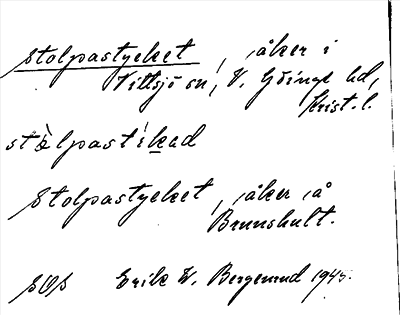 Stolpastycket, åker i
Vittsjö sn, V. Göinge hd,
Krist. l.
stòlpastíkad
Stolpastycket, åker å
Brunshult.
SOS Erik W. Bergenrud 1945.